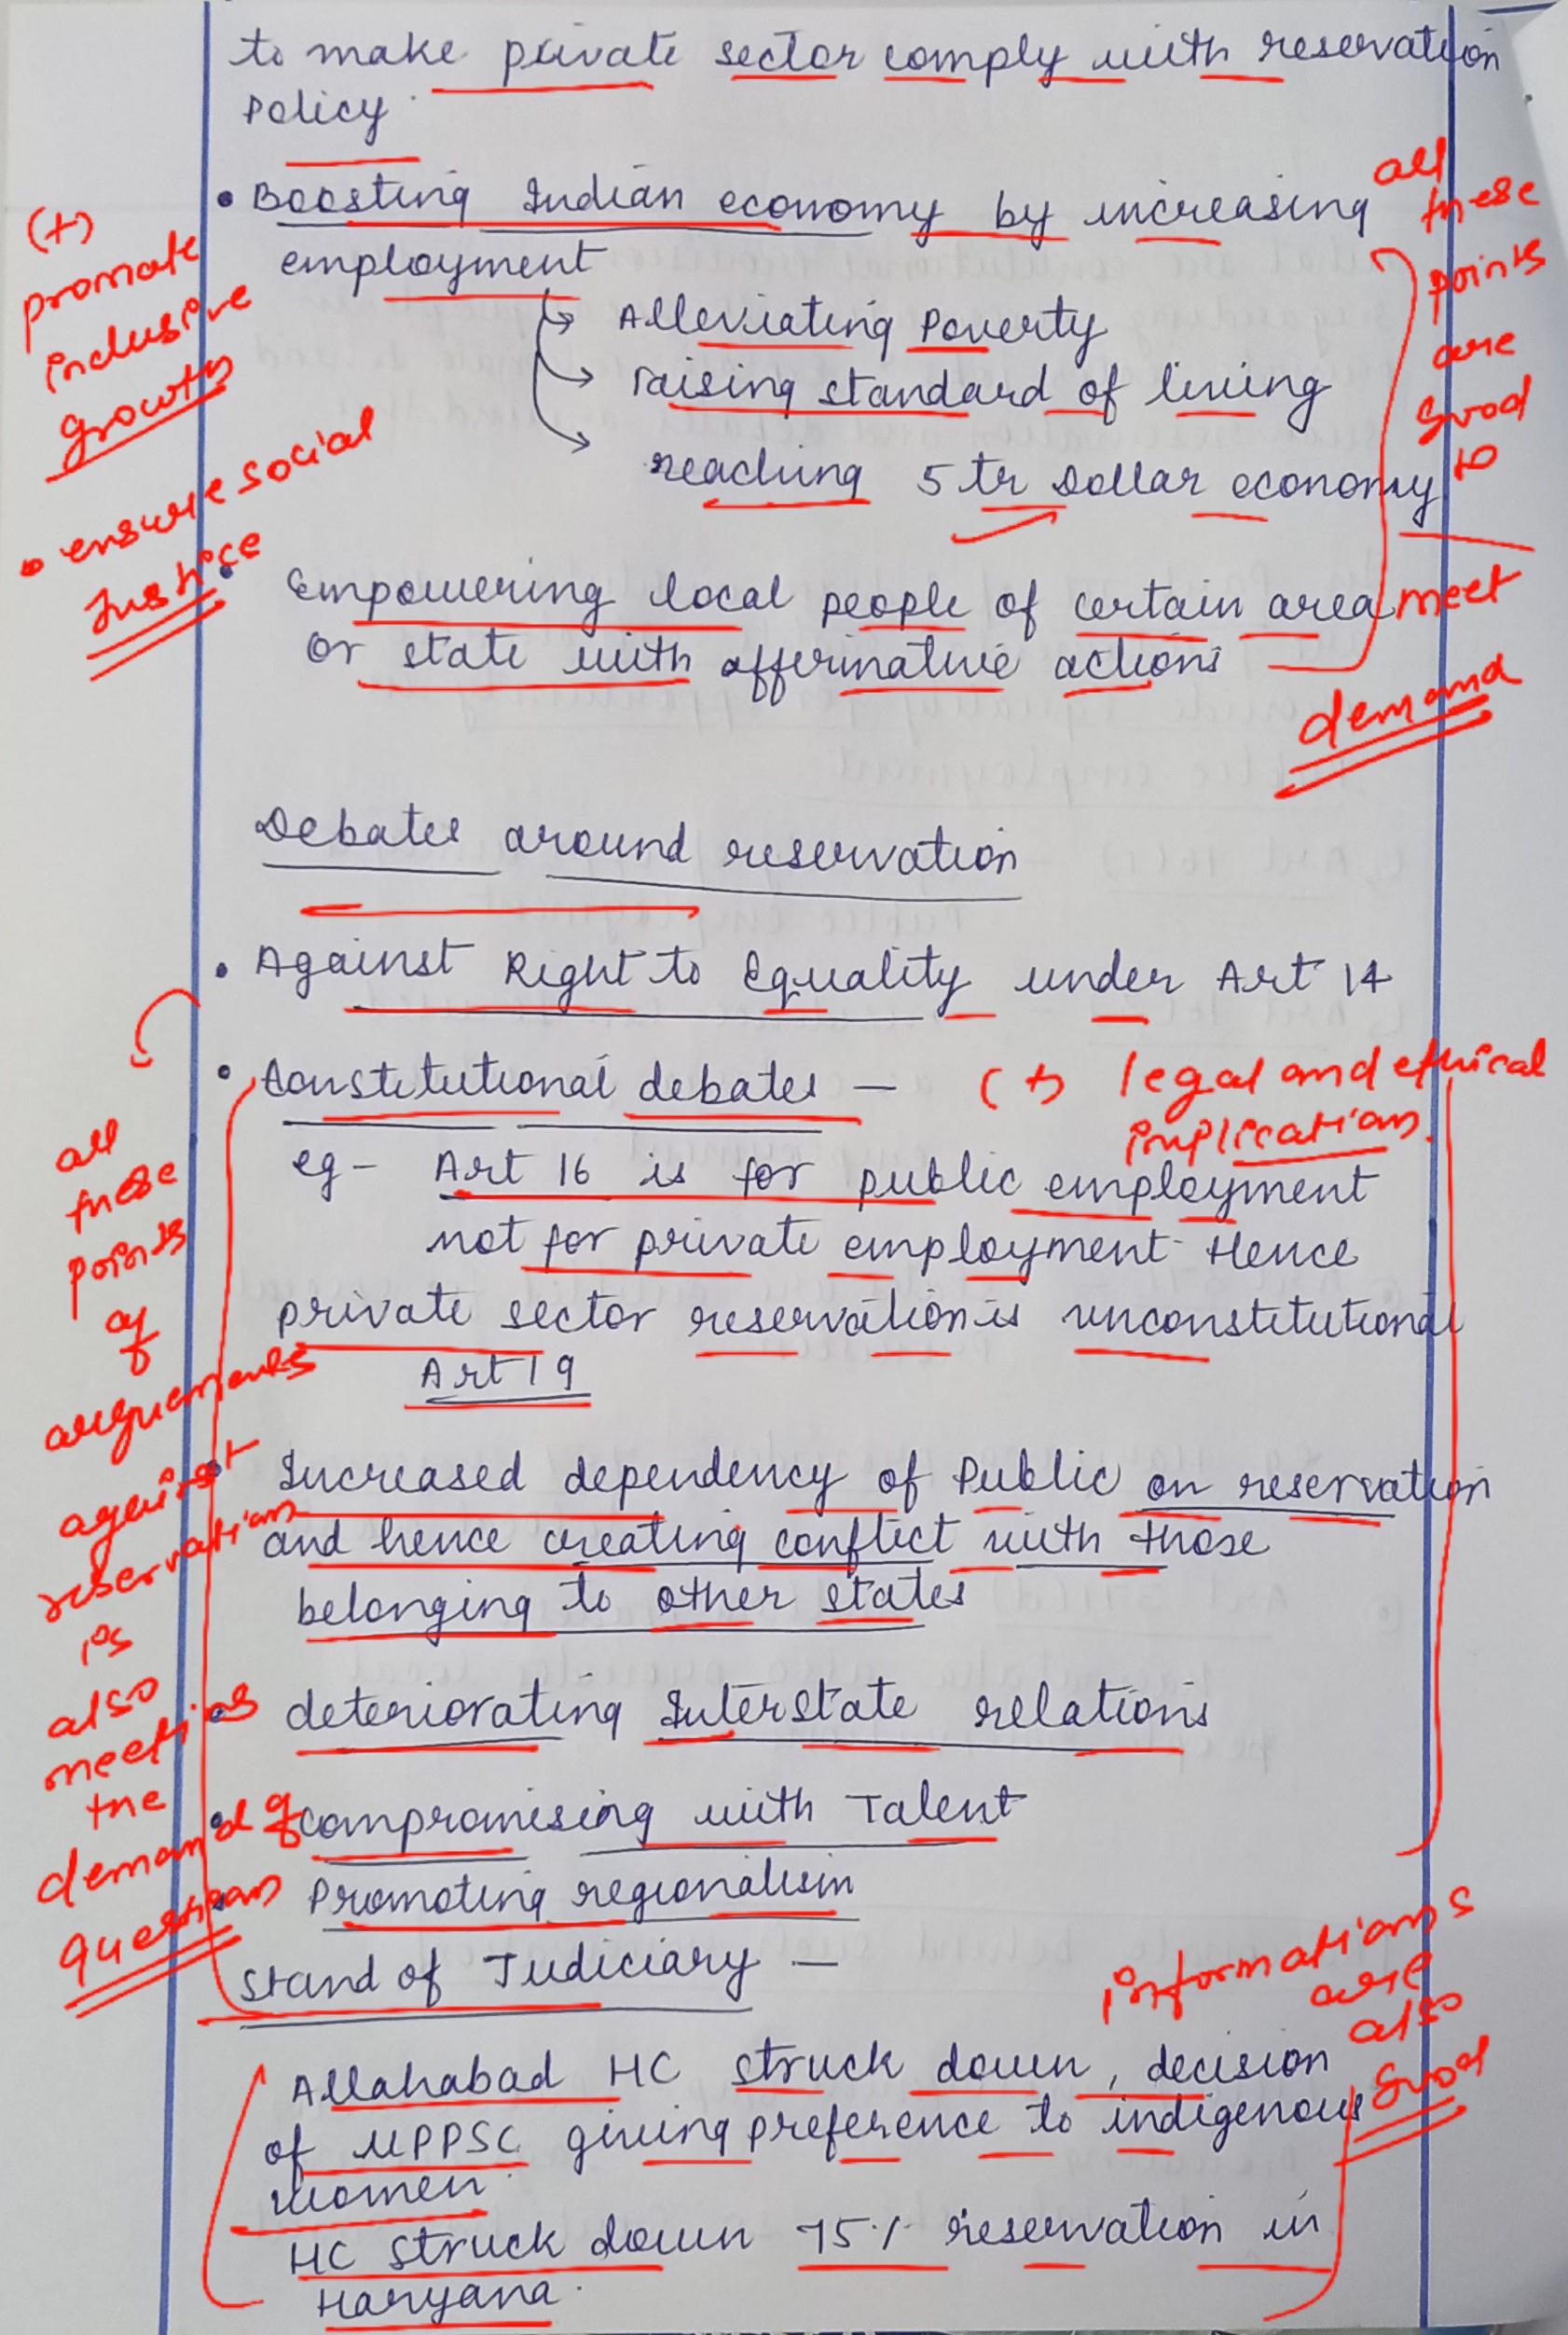 to make private sector comply with reservation
Policy.
• Boosting Indian economy by increasing
employment
↳ Alleviating Poverty
→ raising standard of living
→ reaching 5 tr Dollar economy
• Empowering local people of certain area
or state with affirmative actions
(+)
promote
inclusive
growth
• ensure social
Justice
all
these
points
are
good
to
meet
demand
Debates around reservation
• Against Right to Equality under Art 14
• Constitutional debates —
(+) legal and ethical
implications.
eg - Art 16 is for public employment
not for private employment. Hence
private sector reservation is unconstitutional
Art 19
• Increased dependency of Public on reservation
and hence creating conflict with those
belonging to other states
• deteriorating Interstate relations
• compromising with Talent
• Promoting regionalism
all
these
points
of
arguements
against
reservation
is
also
meeting
the
demand of
question
Stand of Judiciary —
informations
are
also
good
Allahabad HC struck down, decision
of UPPSC giving preference to indigenous
women.
HC struck down 75% reservation in
Haryana.